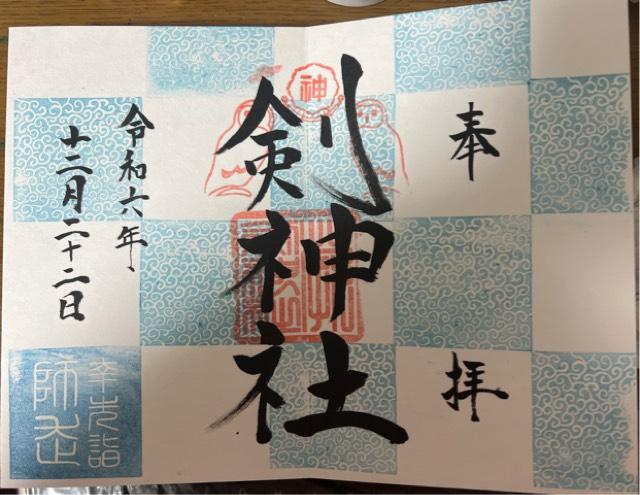 奉拝
剣神社
神
令和六年、
十二月二十二日
幸先詣
師走